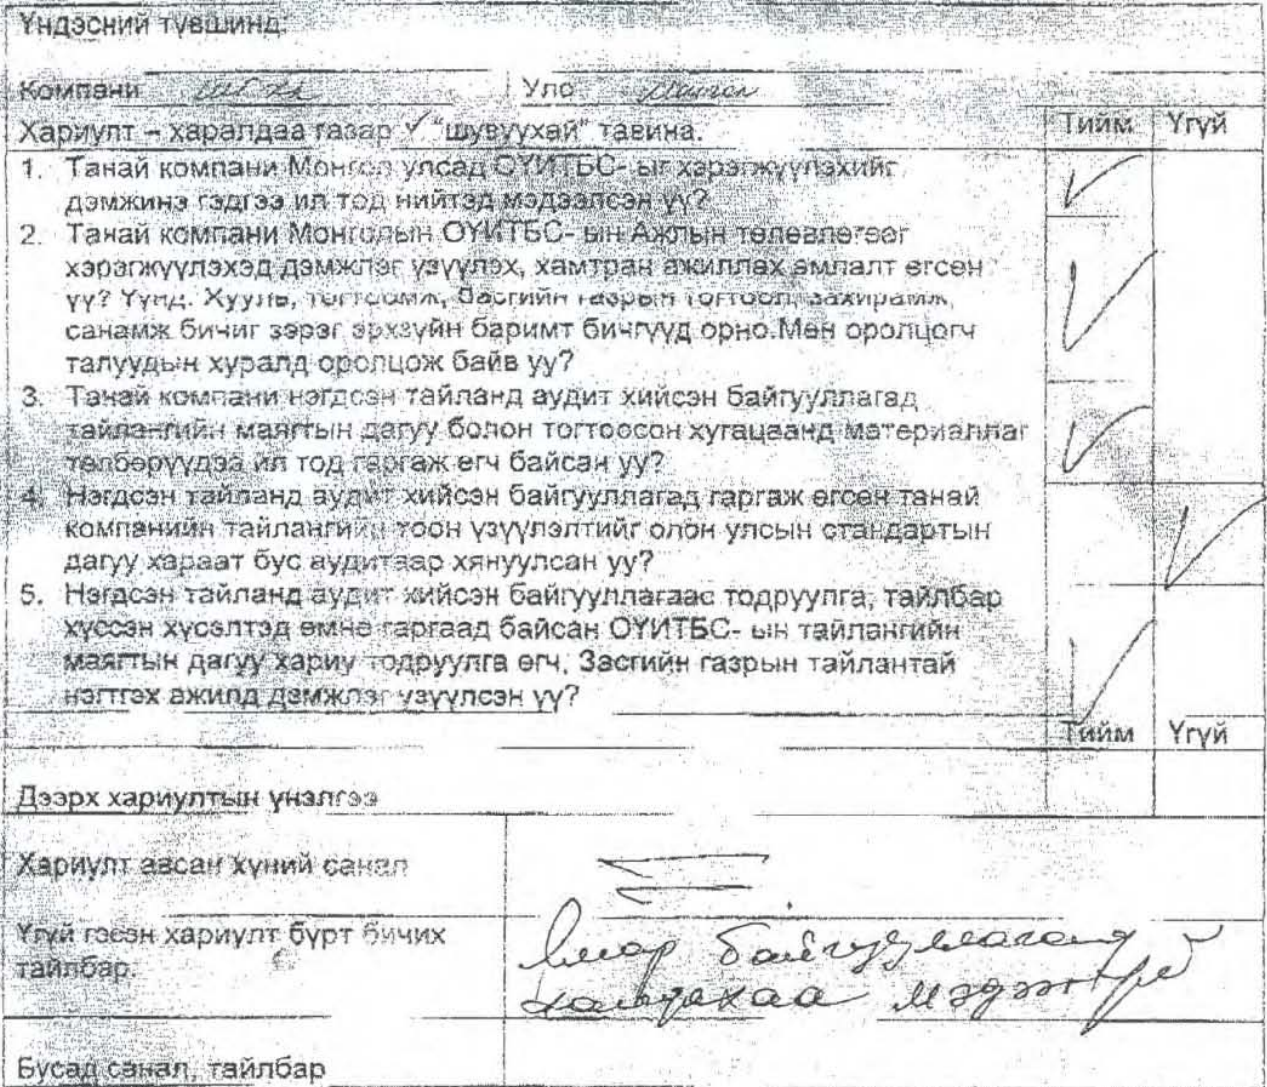 Үндэсний түвшинд:
Компани Улс
Хариулт – харалдаа газар ✓ "шувуухай" тавина. Тийм Үгүй
1. Танай компани Монгол улсад ОҮИТБС- ыг хэрэгжүүлэхийг
дэмжинэ гэдгээ ил тод нийтэд мэдээлсэн үү? ✓
2. Танай компани Монголын ОҮИТБС- ын Ажлын төлөвлөгөөг
хэрэгжүүлэхэд дэмжлэг үзүүлэх, хамтран ажиллах амлалт өгсөн
үү? Үүнд. Хууль, тогтоомж, Засгийн газрын тогтоол, захирамж,
санамж бичиг зэрэг эрхзүйн баримт бичгүүд орно.Мөн оролцогч
талуудын хуралд оролцож байв уу? ✓
3. Танай компани нэгдсэн тайланд аудит хийсэн байгууллагад
тайлангийн маягтын дагуу болон тогтоосон хугацаанд материаллаг
төлбөрүүдээ ил тод гаргаж өгч байсан уу? ✓
4. Нэгдсэн тайланд аудит хийсэн байгууллагад гаргаж өгсөн танай
компанийн тайлангийн тоон үзүүлэлтийг олон улсын стандартын
дагуу хараат бус аудитаар хянуулсан уу? ✓
5. Нэгдсэн тайланд аудит хийсэн байгууллагаас тодруулга, тайлбар
хүссэн хүсэлтэд өмнө гаргаад байсан ОҮИТБС- ын тайлангийн
маягтын дагуу хариу тодруулга өгч, Засгийн газрын тайлантай
нэгтгэх ажилд дэмжлэг үзүүлсэн үү? ✓
Тийм Үгүй
Дээрх хариултын үнэлгээ
Хариулт авсан хүний санал
Үгүй гэсэн хариулт бүрт бичих
тайлбар.
Ямар байгууллаганд
хандахаа мэдээгүй
Бусад санал, тайлбар